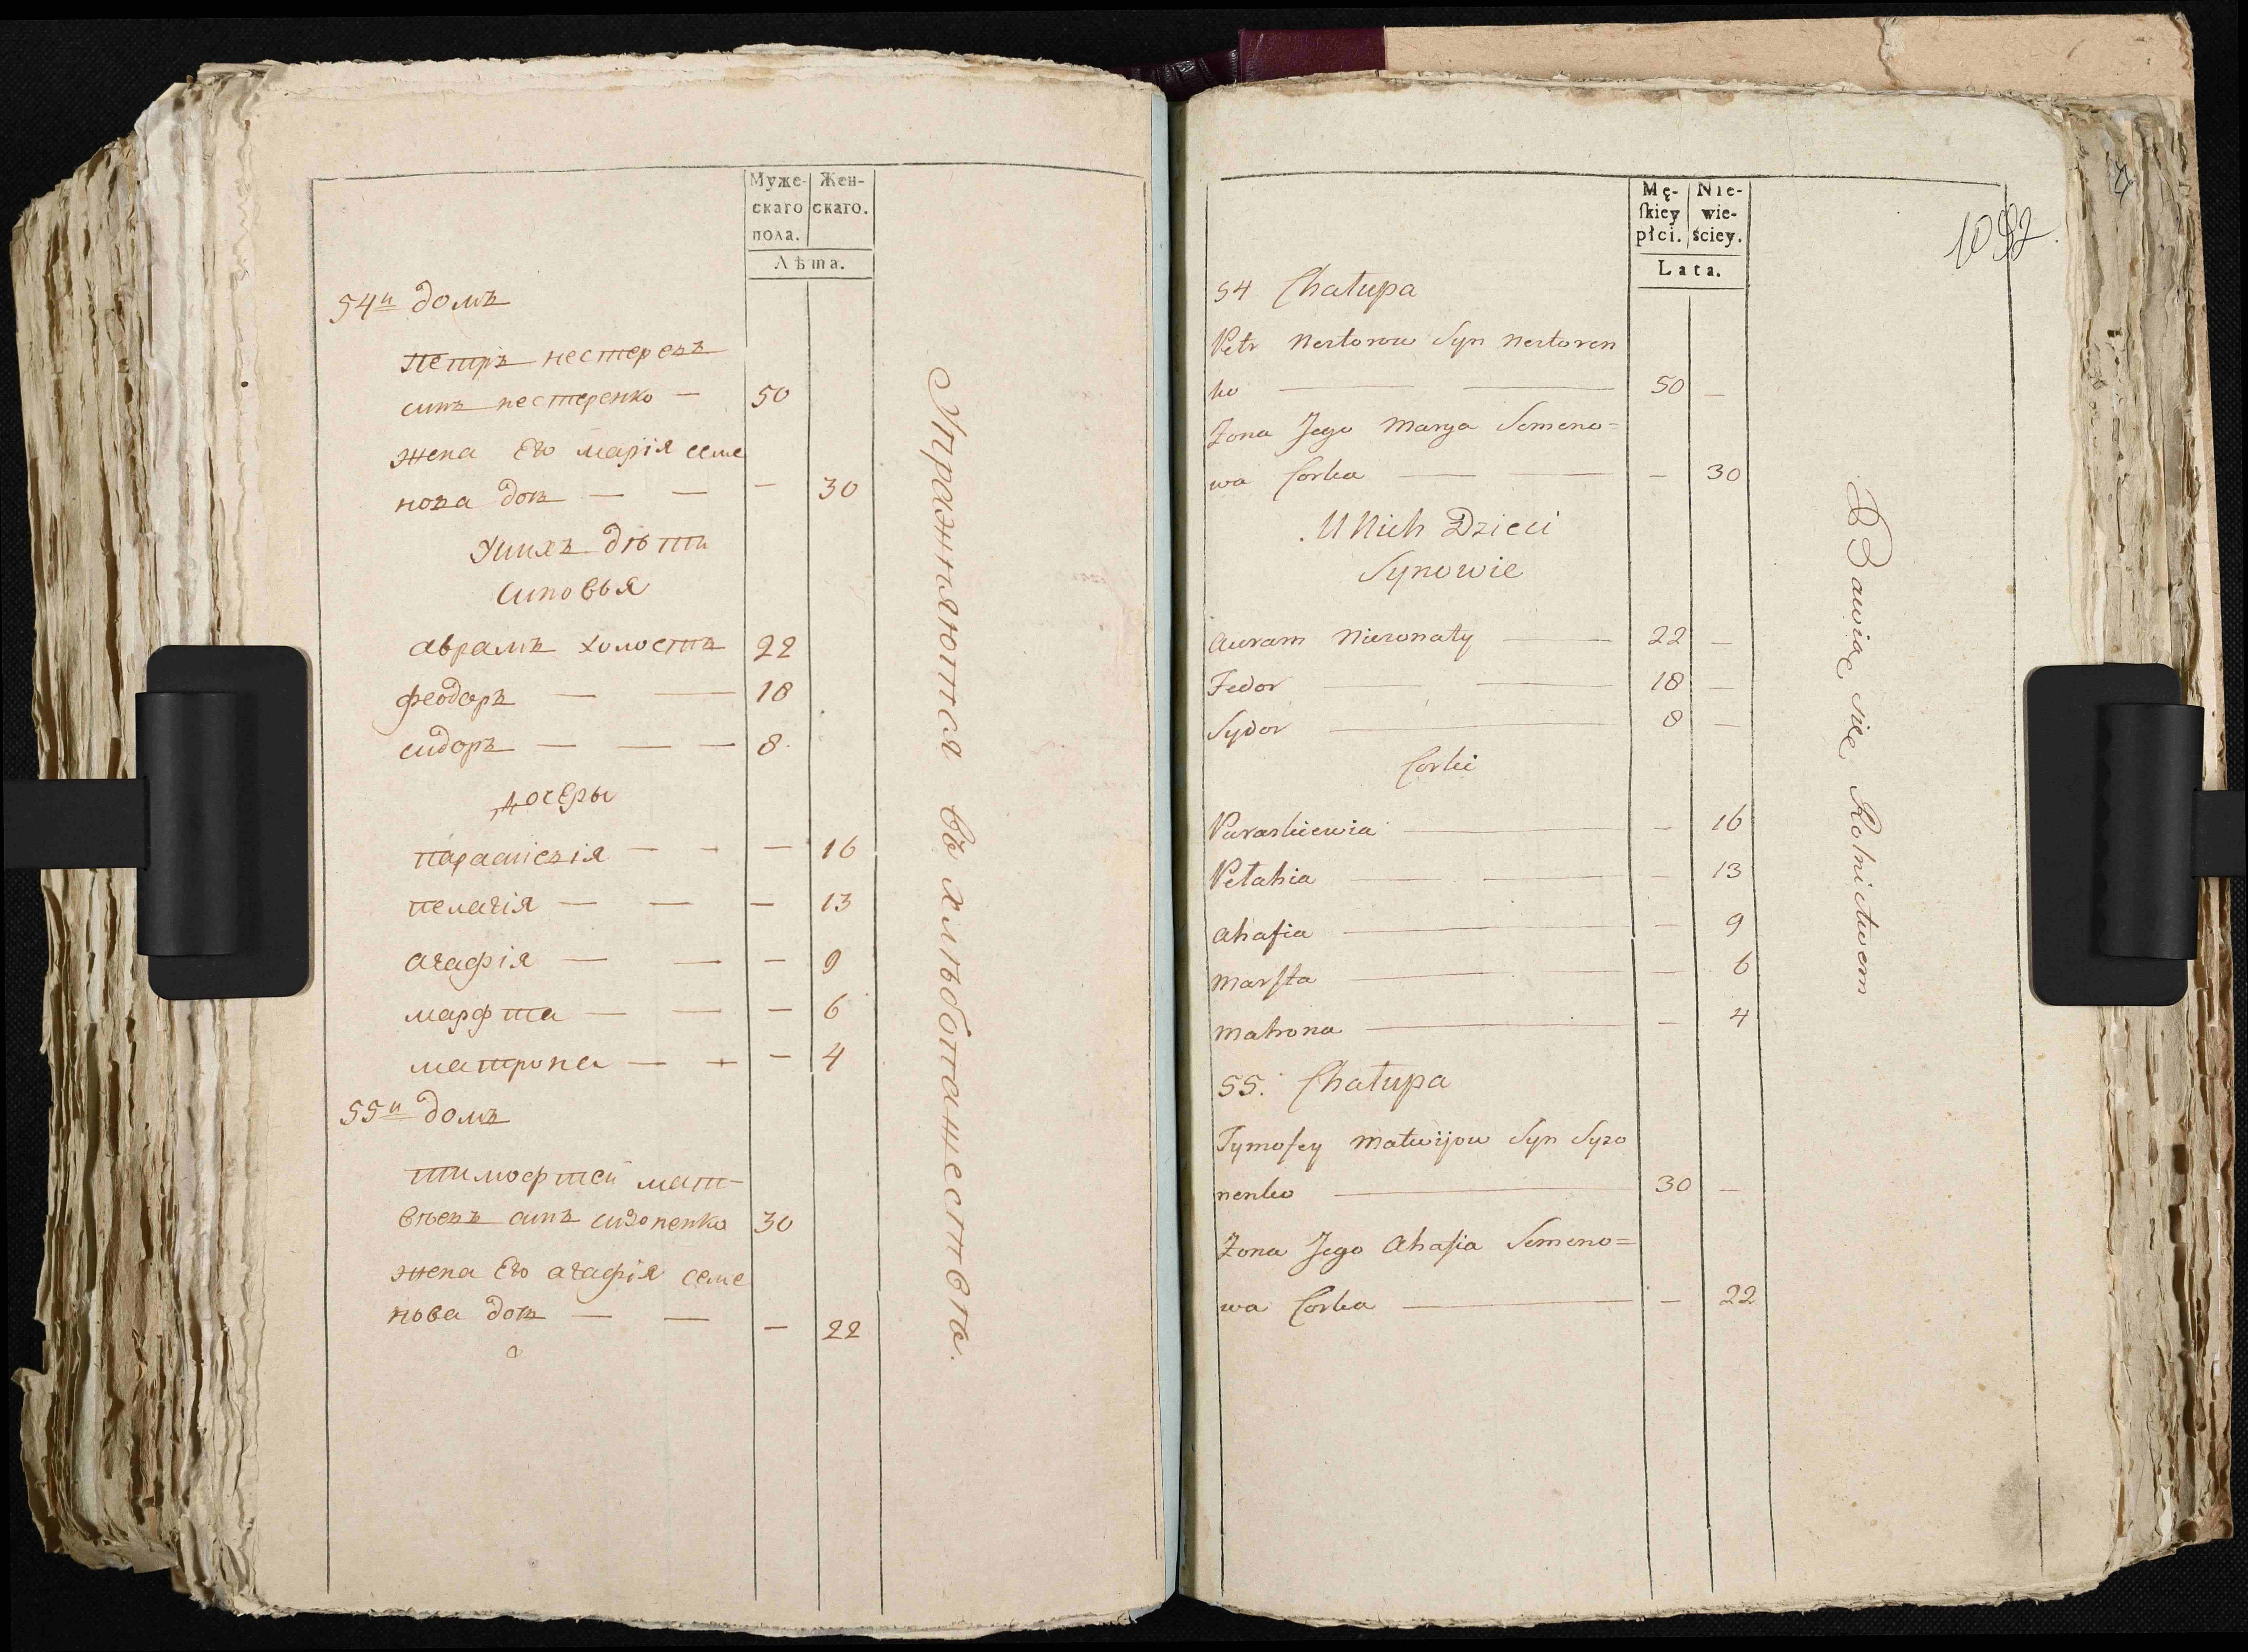 Муже-
скаго
пола.
Жен-
скаго.
Лѣта.
54й домъ
петръ нестеревъ
синъ нестеренко — 50
жена Его марія семе
нова доч — — — 30
Унихъ дѣти
синовья
аврамъ холостъ 22
феодоръ — — 18
сидоръ — — — 8.
дочеры
параскевія — — — 16
пелагія — — — 13
агафія — — — 9
марфта — — — 6
матрона — — — 4
55й домъ
тимофтей мат-
веевъ синъ сизоненко 30
жена Его агафія семе
нова доч — — — 22
Упражняются въ хлѣбопашествѣ.
Mę-
ſkiey
płci.
Nie-
wie-
ściey.
Lata.
1092.
54 Chałupa
Petr Nestorow Syn Nestoren
ko — — 50 —
Zona Jego Marya Semeno=
wa Corka — — — 30
U Nich Dzieci
Synowie
Awram Niezonaty — 22 —
Fedor — — 18 —
Sydor — 8 —
Corki
Paraskiewia — — 16
Pełahia — — — 13
Ahafia — — 9
Marfta — — — 6
Matrona — — 4
55. Chałupa
Tymofey Matwijow Syn Syzo
nenko — 30 —
Zona Jego Ahafia Semeno=
wa Corka — — 22
Bawiąc się Rolnictwem